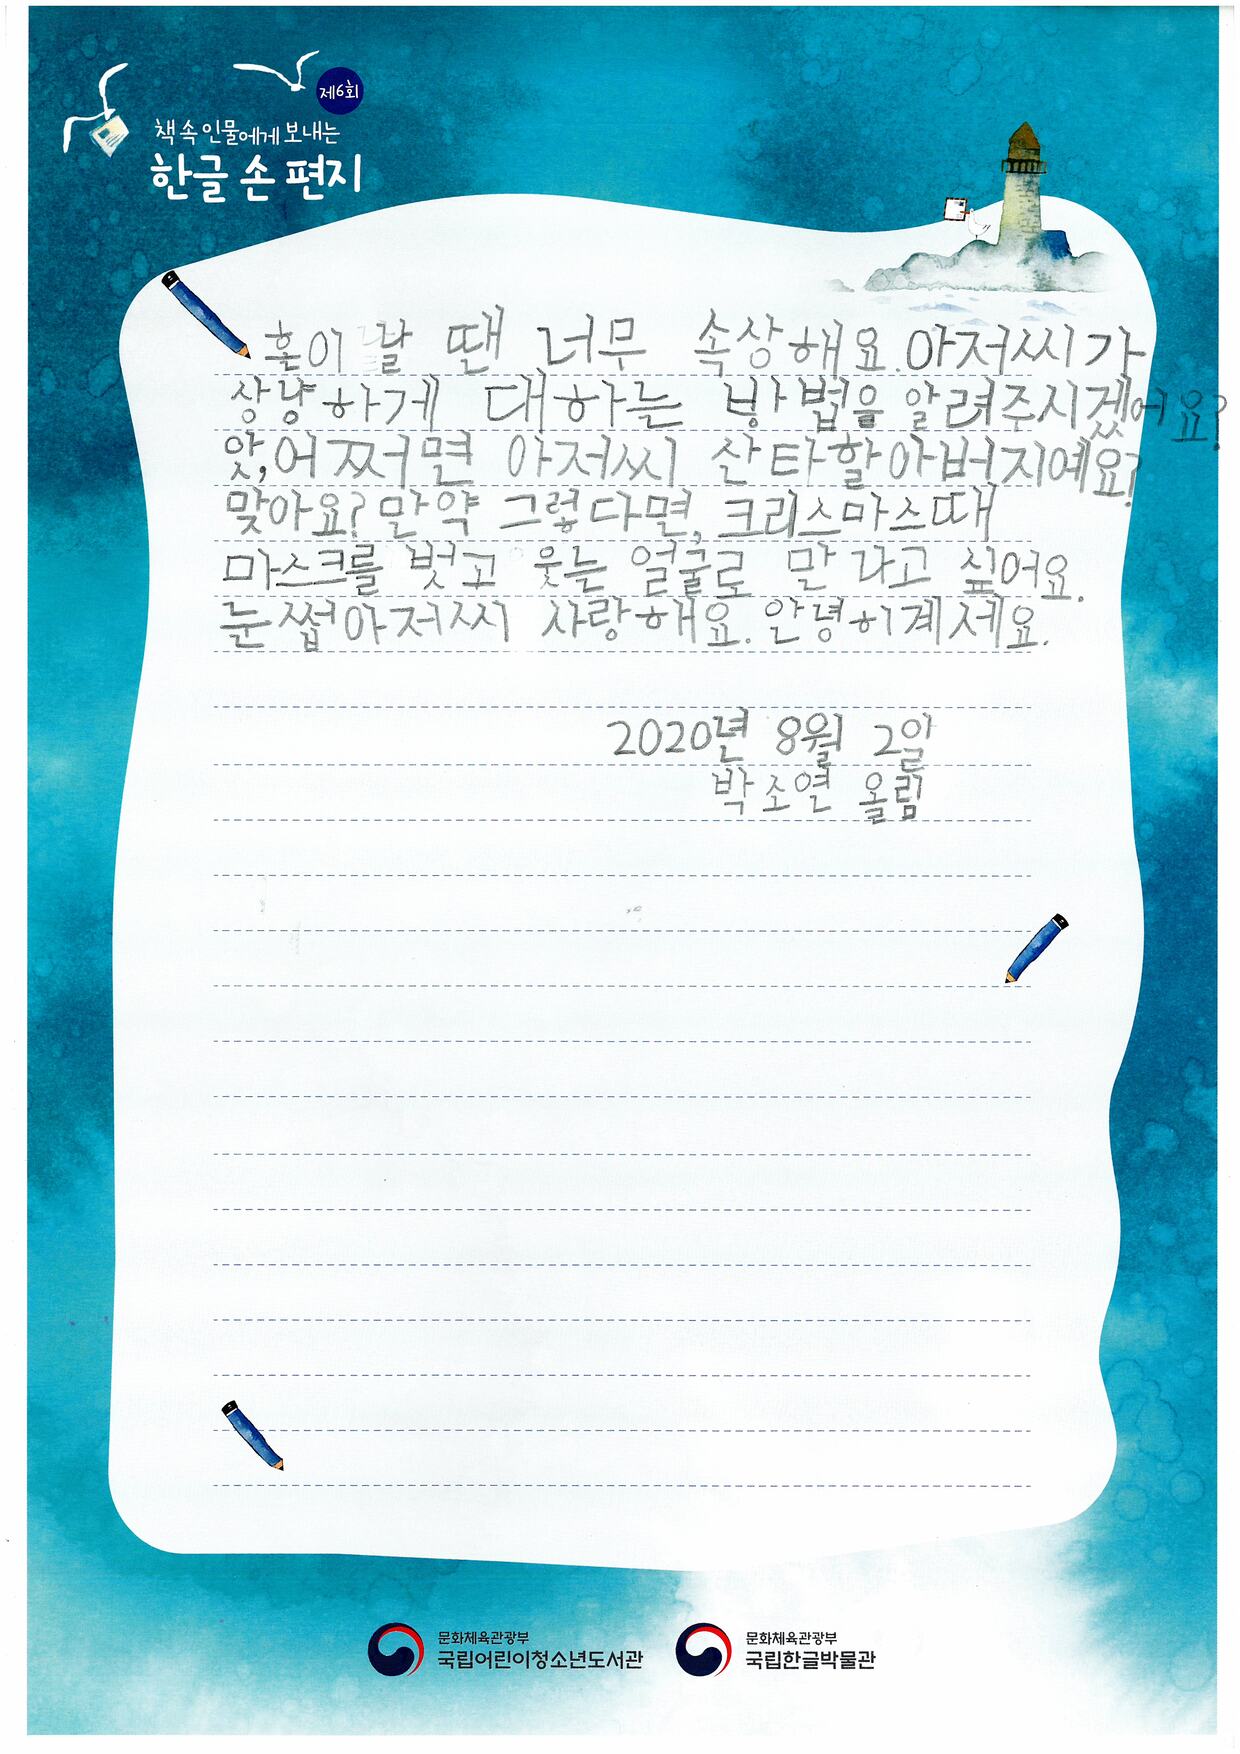 제6회
책 속 인물에게 보내는
한글 손 편지
혼이 날 땐 너무 속상해요. 아저씨가
상냥하게 대하는 방법을 알려주시겠어요?
앗, 어쩌면 아저씨 산타할아버지예요?
맞아요? 만약 그렇다면, 크리스마스때
마스크를 벗고 웃는 얼굴로 만나고 싶어요.
눈썹아저씨 사랑해요. 안녕히계세요.
2020년 8월 2일
박소연 올림
문화체육관광부
국립어린이청소년도서관
문화체육관광부
국립한글박물관